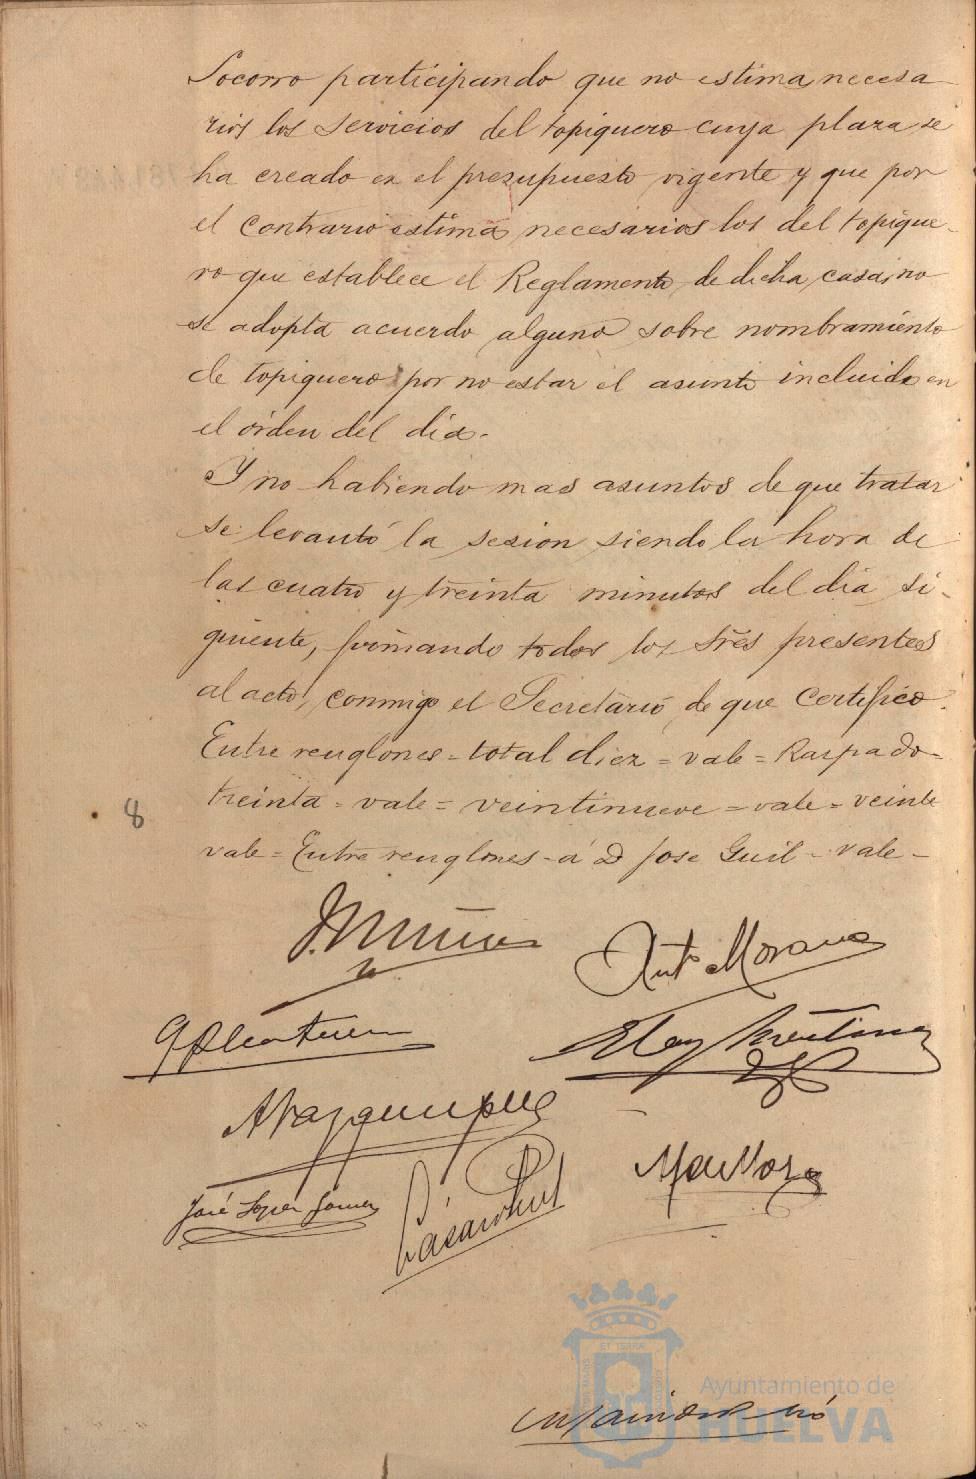 Socorro participando que no estima necesa
rios los servicios del topiquero cuya plaza se
ha creado en el presupuesto vigente y que por
el contrario estima necesarios los del topique-
ro que establece el Reglamento de dicha casa, no
se adopta acuerdo alguno sobre nombramiento
de topiquero por no estar el asunto incluido en
el órden del dia.
Y no habiendo mas asuntos de que tratar
se levantó la sesion siendo la hora de
las cuatro y treinta minutos del dia si-
guiente, firmando todos los Sres presentes
al acto, conmigo el Secretario, de que certifico.
Entre renglones = total diez = vale = Raspado =
treinta = vale = veintinueve = vale = veinte
8
vale = Entre renglones - á D Jose Guil - vale -
J. Muñoz
Ant Morano
Eloy Martinez
A Vazquez
José Lopez Gomez
ET TERRAE
Ayuntamiento de
HUELVA